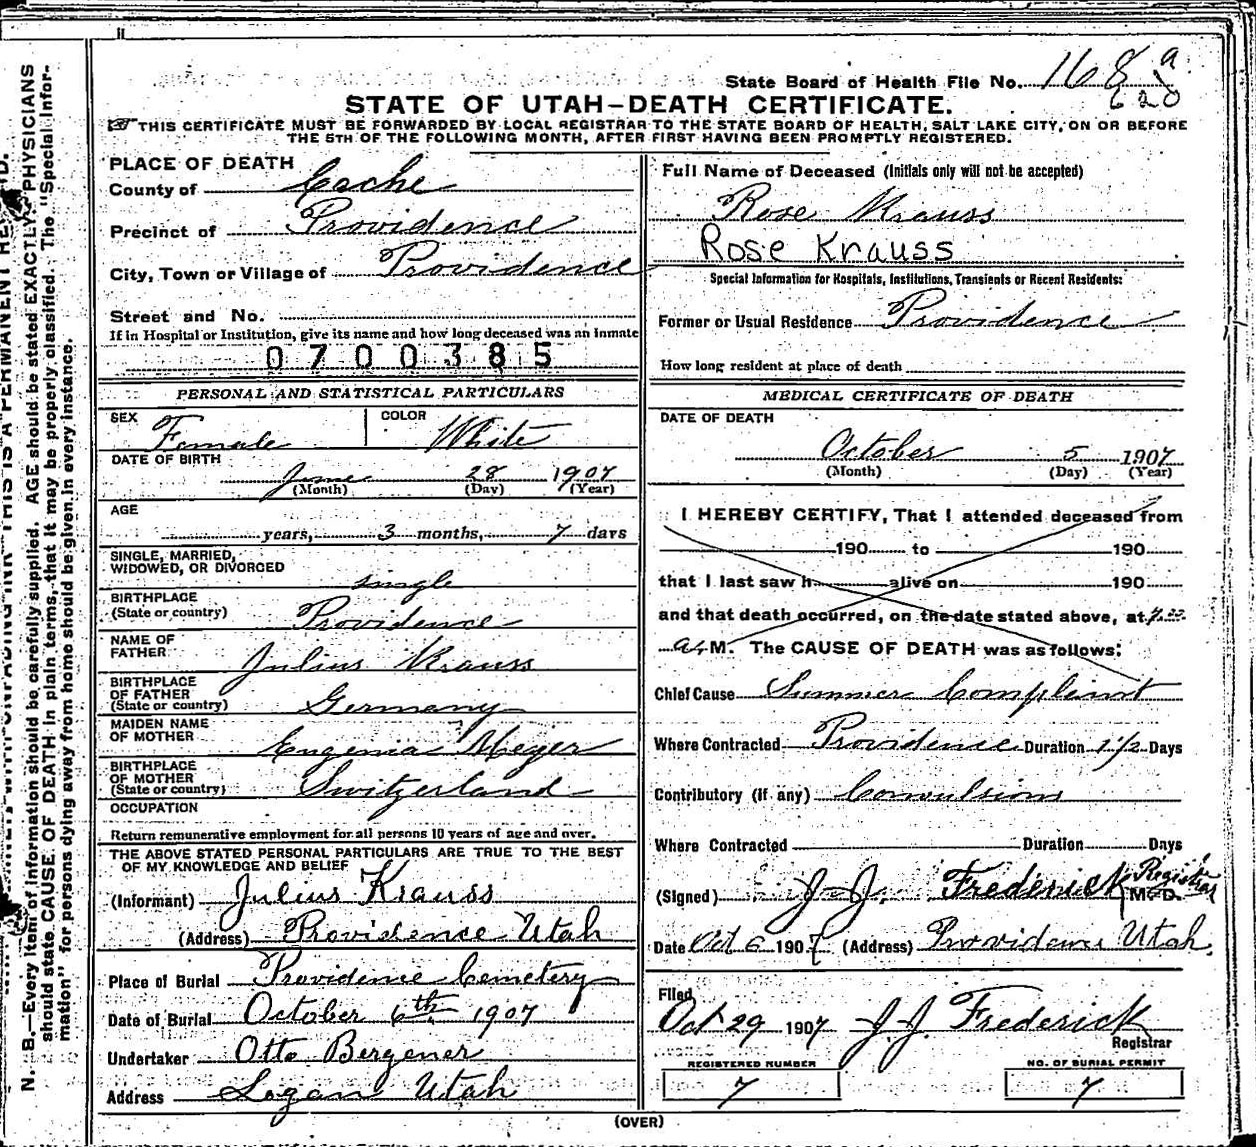 State Board of Health File No. 168 a
620
STATE OF UTAH–DEATH CERTIFICATE.
☞ THIS CERTIFICATE MUST BE FORWARDED BY LOCAL REGISTRAR TO THE STATE BOARD OF HEALTH, SALT LAKE CITY, ON OR BEFORE
THE 5TH OF THE FOLLOWING MONTH, AFTER FIRST HAVING BEEN PROMPTLY REGISTERED.
PLACE OF DEATH
County of Cache
Precinct of Providence
City, Town or Village of Providence
Street and No.
If in Hospital or Institution, give its name and how long deceased was an inmate
0700385
PERSONAL AND STATISTICAL PARTICULARS
SEX Female COLOR White
DATE OF BIRTH
June 28 1907
(Month) (Day) (Year)
AGE
years, 3 months, 7 days
SINGLE, MARRIED,
WIDOWED, OR DIVORCED single
BIRTHPLACE
(State or country) Providence
NAME OF
FATHER Julius Krauss
BIRTHPLACE
OF FATHER
(State or country) Germany
MAIDEN NAME
OF MOTHER Eugenia Meyer
BIRTHPLACE
OF MOTHER
(State or country) Switzerland
OCCUPATION
Return remunerative employment for all persons 10 years of age and over.
THE ABOVE STATED PERSONAL PARTICULARS ARE TRUE TO THE BEST
OF MY KNOWLEDGE AND BELIEF
(Informant) Julius Krauss
(Address) Providence Utah
Place of Burial Providence Cemetery
Date of Burial October 6th. 1907
Undertaker Otto Bergener
Address Logan Utah
Full Name of Deceased (Initials only will not be accepted)
Rose Krauss
Rose Krauss
Special Information for Hospitals, Institutions, Transients or Recent Residents:
Former or Usual Residence Providence
How long resident at place of death
MEDICAL CERTIFICATE OF DEATH
DATE OF DEATH
October 5 1907
(Month) (Day) (Year)
I HEREBY CERTIFY, That I attended deceased from
190 to 190
that I last saw h alive on 190
and that death occurred, on the date stated above, at
a. M. The CAUSE OF DEATH was as follows:
Chief Cause Summer Complaint
Where Contracted Providence Duration 1 1/2 Days
Contributory (if any) Convulsions
Where Contracted Duration Days
(Signed) J. J. Frederick Registrar M. D.
Date Oct 6 1907 (Address) Providence Utah.
Filed
Oct 29 1907 J. J. Frederick
Registrar
REGISTERED NUMBER
7
NO. OF BURIAL PERMIT
7
(OVER)
N. B.—Every item of information should be carefully supplied. AGE should be stated EXACTLY. PHYSICIANS
should state CAUSE OF DEATH in plain terms, that it may be properly classified. The "Special Infor-
mation" for persons dying away from home should be given in every instance.